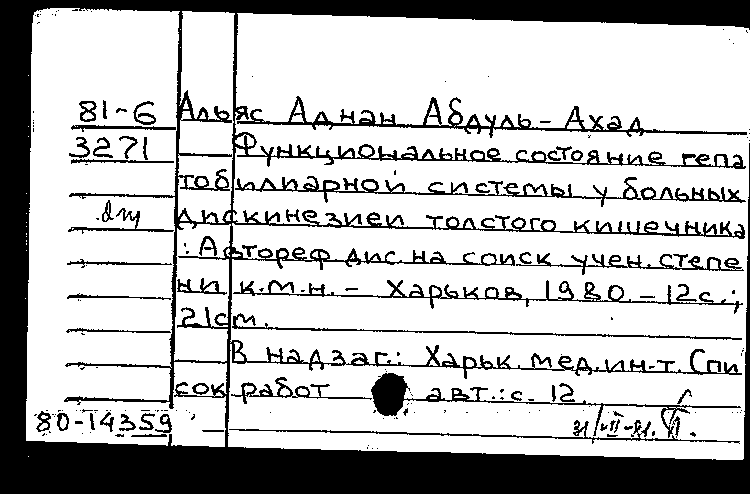 81-6 Альяс Аднан Абдуль-Ахад
3271 Функциональное состояние гепа
тобилиарной системы у больных
дискинезией толстого кишечника
: Автореф дис. на соиск учен. степе
ни к.м.н. - Харьков, 1980. - 12с.;
21см.
В надзаг.: Харьк. мед. ин-т. Спи
сок работ авт.: с. 12.
80-14359